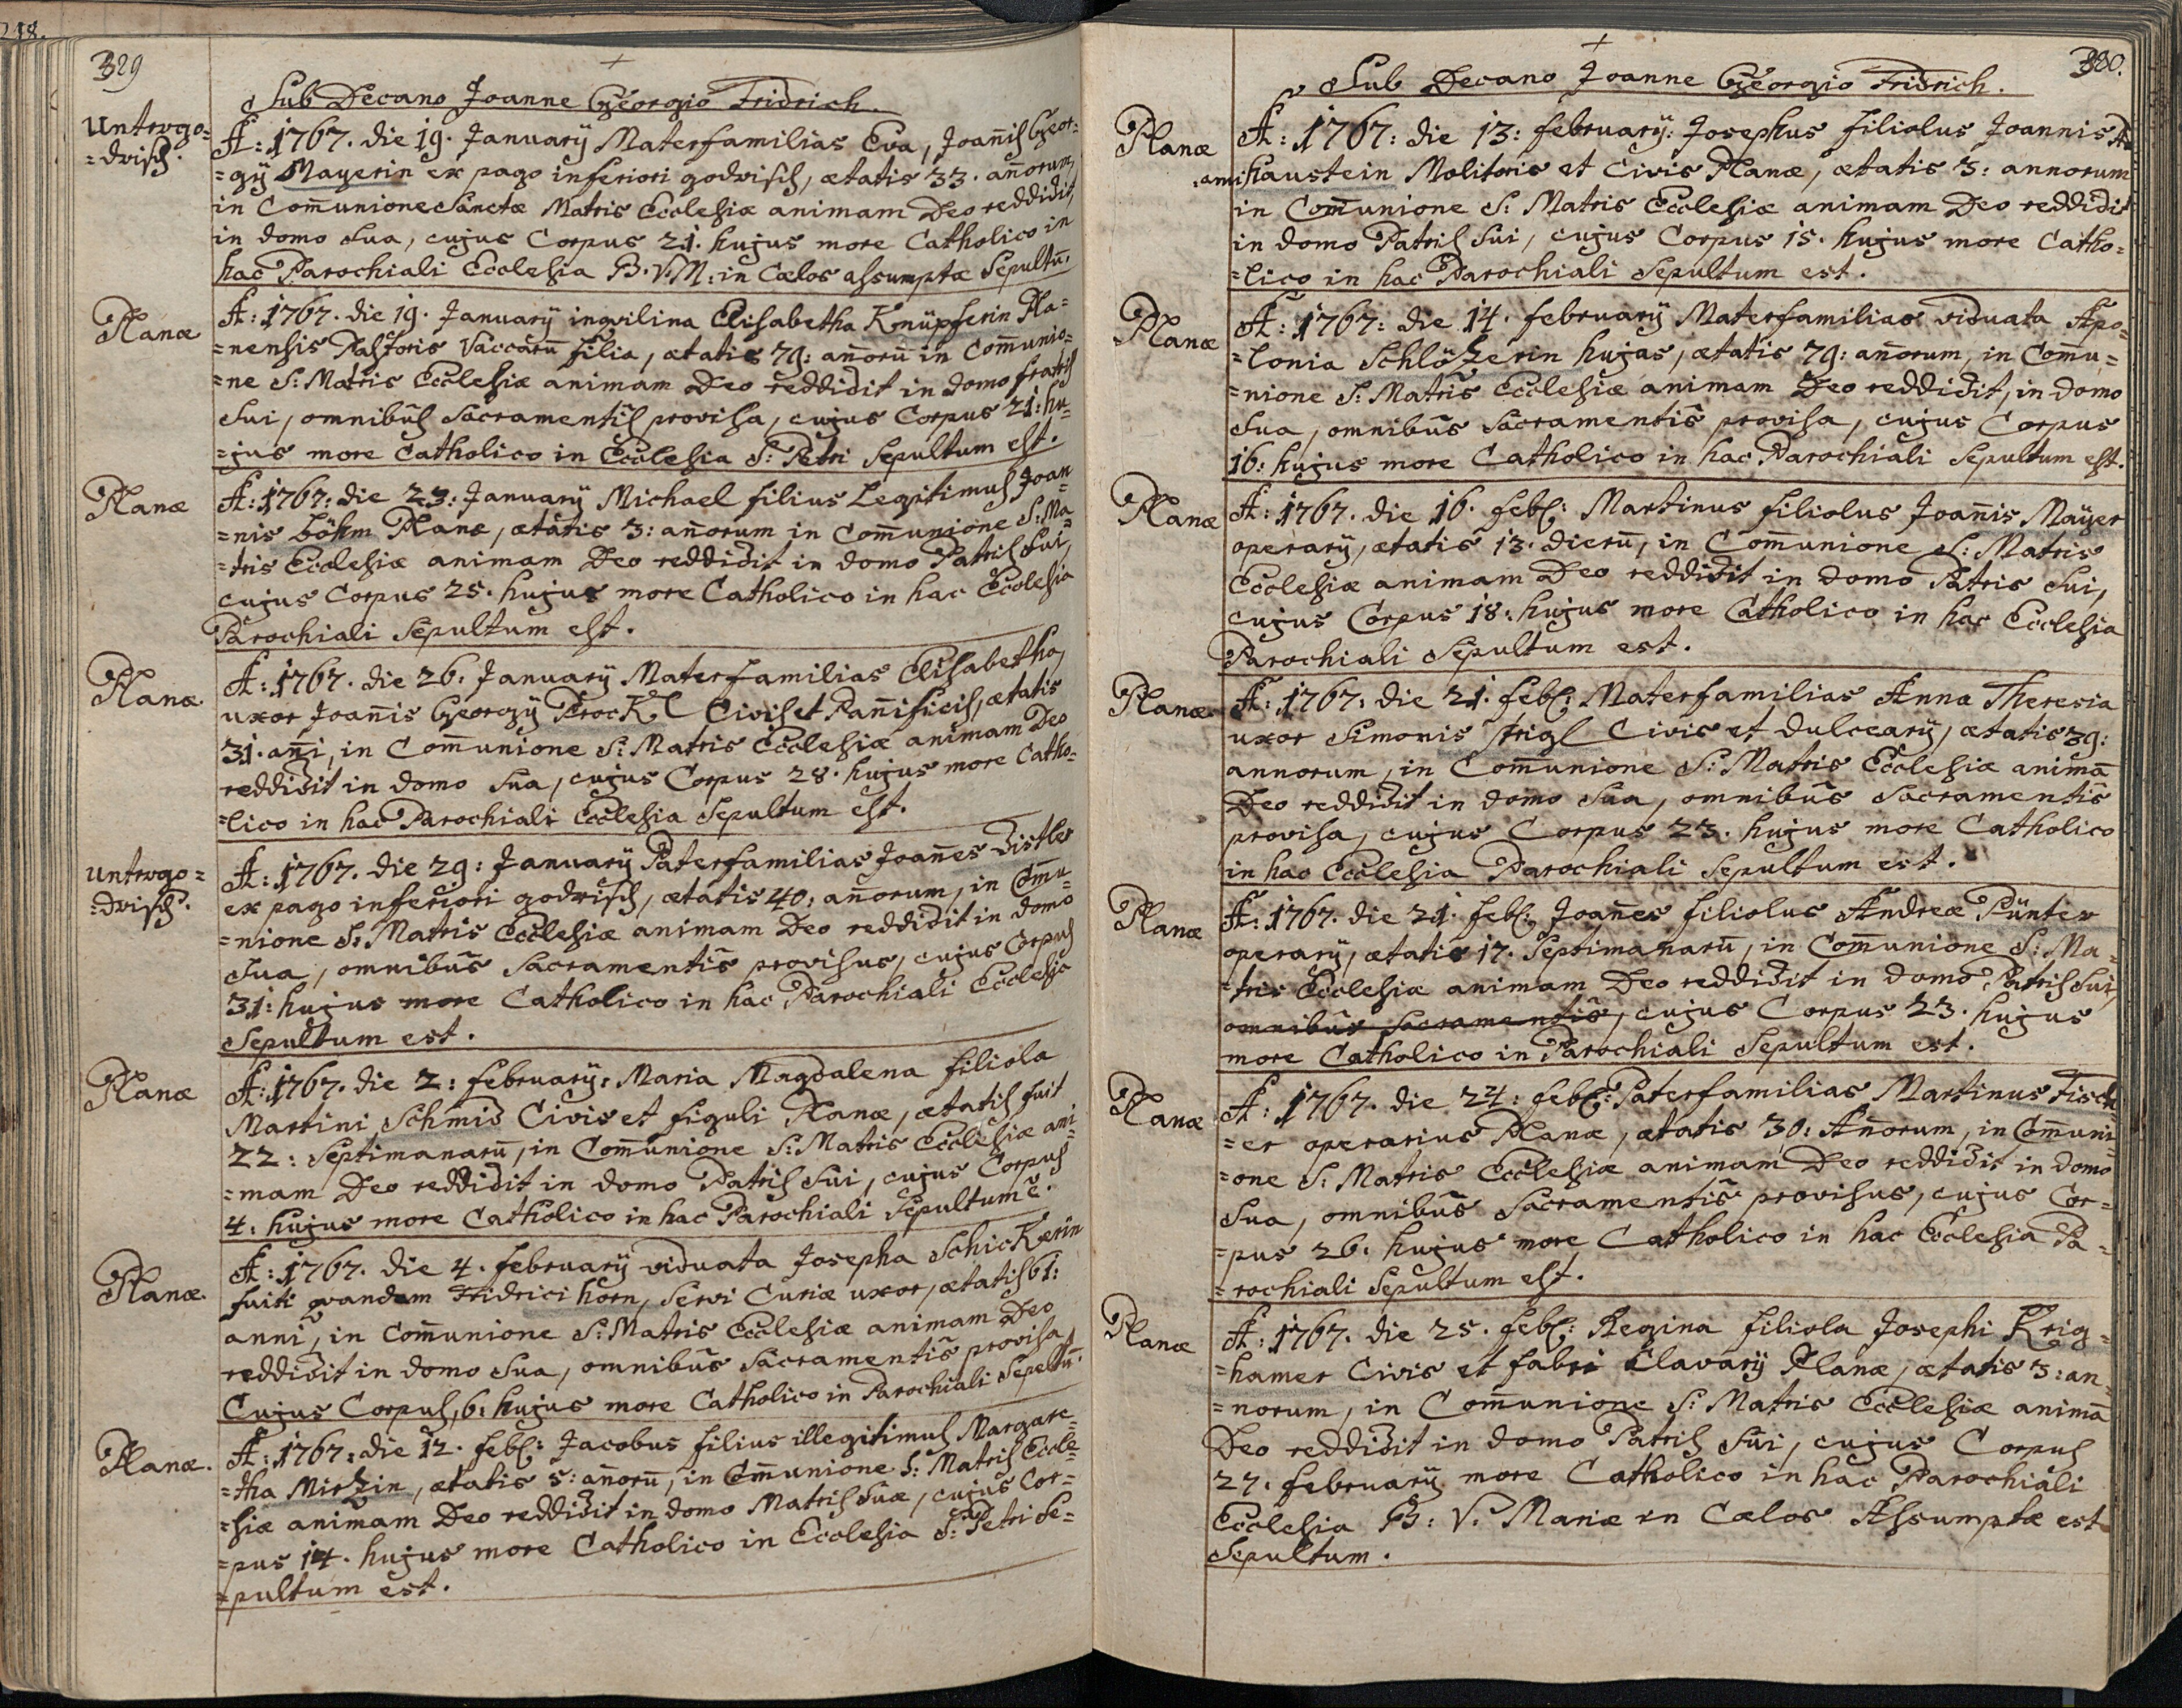 218.
329
Sub Decano Joanne Georgio Fridrich.
Untergo=
=drisch.
A: 1767. die 19. Januarij Materfamilias Eva, Joañis Geor=
=gij Mayerin ex pago inferiori godrisch, ætatis 33. añorum,
in Com̄unione Sanctæ Matris Ecclesiæ animam Deo reddidit,
in domo Sua, cujus Corpus 21. hujus more Catholico in
hac Parochiali Ecclesia B. V. M: in Cælos assumptæ Sepultū.
Planæ
A: 1767. die 19. Januarij inqvilina Elisabetha Knüpferin Pla=
=nensis Pastoris Vaccarū filia, ætatis 79: añorū in Com̄unio=
=ne S: Matris Ecclesiæ animam Deo reddidit in domo fratris
Sui, omnibus Sacramentis provisa, cujus Corpus 21: hu=
=jus more Catholico in Ecclesia S: Petri Sepultum est.
Planæ
A: 1767: die 23: Januarij Michael filius Legitimus Joan=
=nis böhm Planæ, ætatis 3: añorum in Com̄unione S: Ma=
=tris Ecclesiæ animam Deo reddidit in domo Patris Sui,
cujus Corpus 25. hujus more Catholico in hac Ecclesia
Parochiali Sepultum est.
Planæ
A: 1767. die 26: Januarij Materfamilias Elisabetha,
uxor Joañis Georgij Prockl Civis et Pañificis, ætatis
31. añi, in Com̄unione S: Matris Ecclesiæ animam Deo
reddidit in domo Sua, cujus Corpus 28. hujus more Catho=
=lico in hac Parochiali Ecclesia Sepultum est.
Untergo=
=drisch.
A: 1767. die 29: Januarij Paterfamilias Joañes Distler
ex pago inferiori godrisch, ætatis 40: añorum, in Com̄u=
=nione S: Matris Ecclesiæ animam Deo reddidit in domo
Sua, omnibus Sacramentis provisus, cujus Corpus
31: hujus more Catholico in hac Parochiali Ecclesia
Sepultum est.
Planæ
A: 1767. die 2: februarij: Maria Magdalena filiola
Martini Schmid Civis et figuli Planæ, ætatis fuit
22: Septimanarū, in Com̄unione S: Matris Ecclesiæ ani=
=mam Deo reddidit in domo Patris Sui, cujus Corpus
4: hujus more Catholico in hac Parochiali Sepultum ē.
Planæ.
A: 1767. die 4. februarij viduata Josepha Schickerin
fuiti qvandam Fridrici horn, Servi Curiæ uxor, ætatis 61:
anni, in Com̄unione S: Matris Ecclesiæ animam Deo
reddidit in domo Sua, omnibus Sacramentis provisa,
Cujus Corpus, 6: hujus more Catholico in Parochiali Sepultū.
Planæ.
A: 1767: die 12. feb: Jacobus filius illegitimus Margare=
=tha Mirzin, ætatis 5: añorū, in Com̄unione S: Matris Eccle=
=siæ animam Deo reddidit in domo Matris Suæ, cujus Cor=
=pus 14. hujus more Catholico in Ecclesia S: Petri Se=
=pultum est.
330.
Sub Decano Joanne Georgio Fridrich.
Planæ
A: 1767: die 13: februarij: Josephus filiolus Joannis Ad
ami haustein Molitoris et Civis Planæ, ætatis 3: annorum
in Com̄unione S: Matris Ecclesiæ animam Deo reddidit
in domo Patris Sui, cujus Corpus 15. hujus more Catho=
=lico in hac Parochiali Sepultum est.
Planæ
A: 1767: die 14. februarij Materfamilias viduata Apo=
=lonia Schlözerin hujas, ætatis 79: añorum, in Com̄u=
=nione S: Matris Ecclesiæ animam Deo reddidit, in domo
Sua, omnibus Sacramentis provisa, cujus Corpus
16: hujus more Catholico in hac Parochiali Sepultum est.
Planæ
A: 1767. die 16. feb: Martinus filiolus Joañis Mayer
operarij, ætatis 13. dierū, in Com̄unione S: Matris
Ecclesiæ animam Deo reddidit in domo Patris Sui,
cujus Corpus 18: hujus more Catholico in hac Ecclesia
Parochiali Sepultum est.
Planæ
A: 1767: die 21. feb: Materfamilias Anna Theresia
uxor Simonis strigl Civis et dulcearij, ætatis 39:
annorum, in Com̄unione S: Matris Ecclesiæ animā
Deo reddidit in domo Sua, omnibus Sacramentis
provisa, cujus Corpus 23. hujus more Catholico
in hac Ecclesia Parochiali Sepultum est.
Planæ
A: 1767. die 21. feb: Joañes filiolus Andreæ Pünter
operarij, ætatis 17. Septimanarū, in Com̄unione S: Ma=
=tris Ecclesiæ animam Deo reddidit in domo Patris Sui,
omnibus Sacramentis, cujus Corpus 23. hujus
more Catholico in Parochiali Sepultum est.
Planæ
A: 1767. die 24: feb: Paterfamilias Martinus Fisch
=er operarius Planæ, ætatis 30: Añorum, in Com̄uni=
=one S: Matris Ecclesiæ animam Deo reddidit in domo
Sua, omnibus Sacramentis provisus, cujus Cor=
=pus 26. hujus more Catholico in hac Ecclesia Pa=
=rochiali Sepultum est.
Planæ
A: 1767. die 25. feb: Regina filiola Josephi Krig=
=hamer Civis et fabri Clavarij Planæ, ætatis 3: an=
=norum, in Com̄unione S: Matris Ecclesiæ animā
Deo reddidit in domo Patris Sui, cujus Corpus
27. februarij more Catholico in hac Parochiali
Ecclesia B: V. Mariæ in Cælos Assumptæ est
Sepultum.